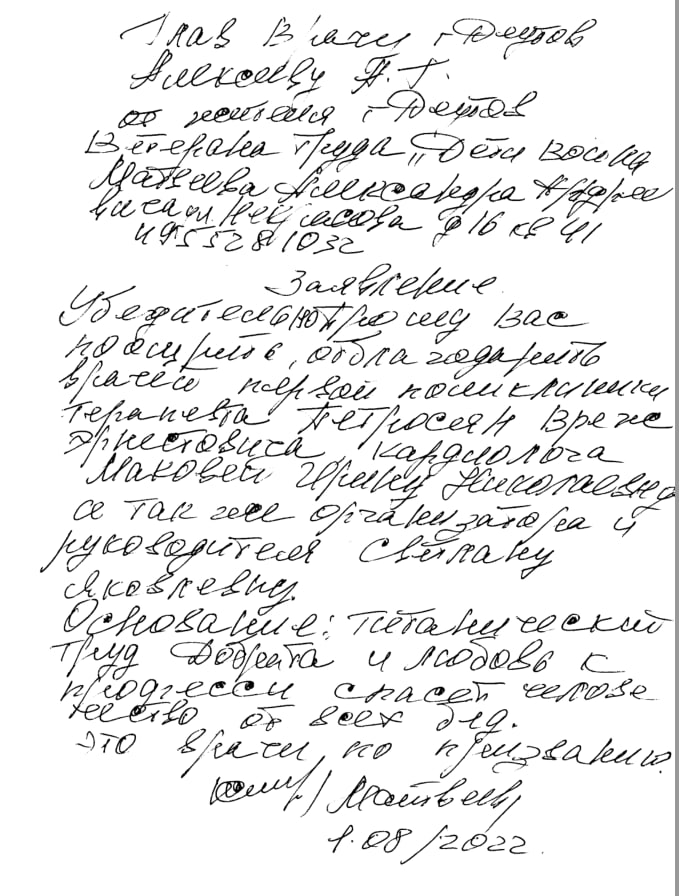 Глав Врачу г. Реутов
Алексееву А. Г.
от жителя г. Реутов
Ветерана труда „Дети войны
Матвеева Александра Андрее
вича ул. Некрасова д 16 кв 41
4955281032
Заявление
Убедительно прошу Вас
поощрить, отблагодарить
врачей первой поликлиники
терапевта Петросян Вреж
Эрнестовича, кардиолога
Маковей Ирину Николаевну
а так же организатора и
руководителя Светлану
Яковлевну.
Основание: титанический
труд Доброта и любовь к
профессии спасет челове
чество от всех бед.
Это врачи по призванию.
Матвеев
1.08/2022.